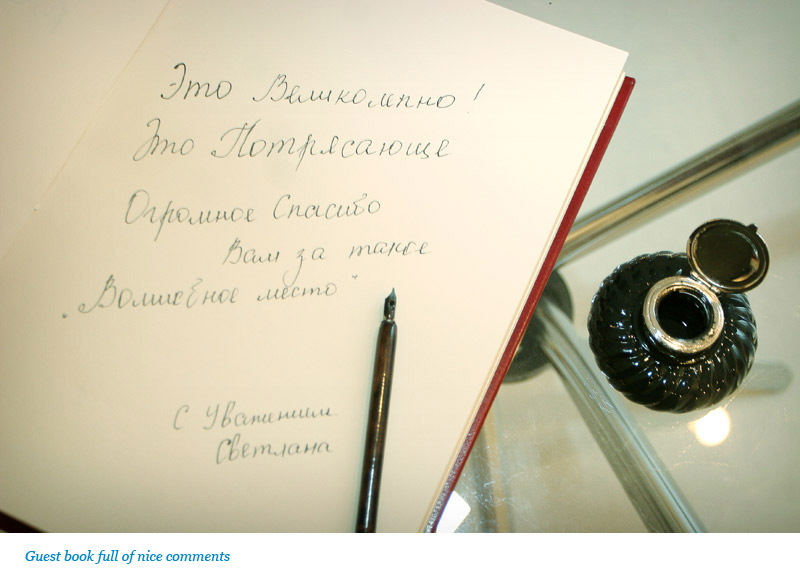 Это Великолепно!
Это Потрясающе
Огромное Спасибо
Вам за такое
„Волшебное место"
С Уважением
Светлана
Guest book full of nice comments